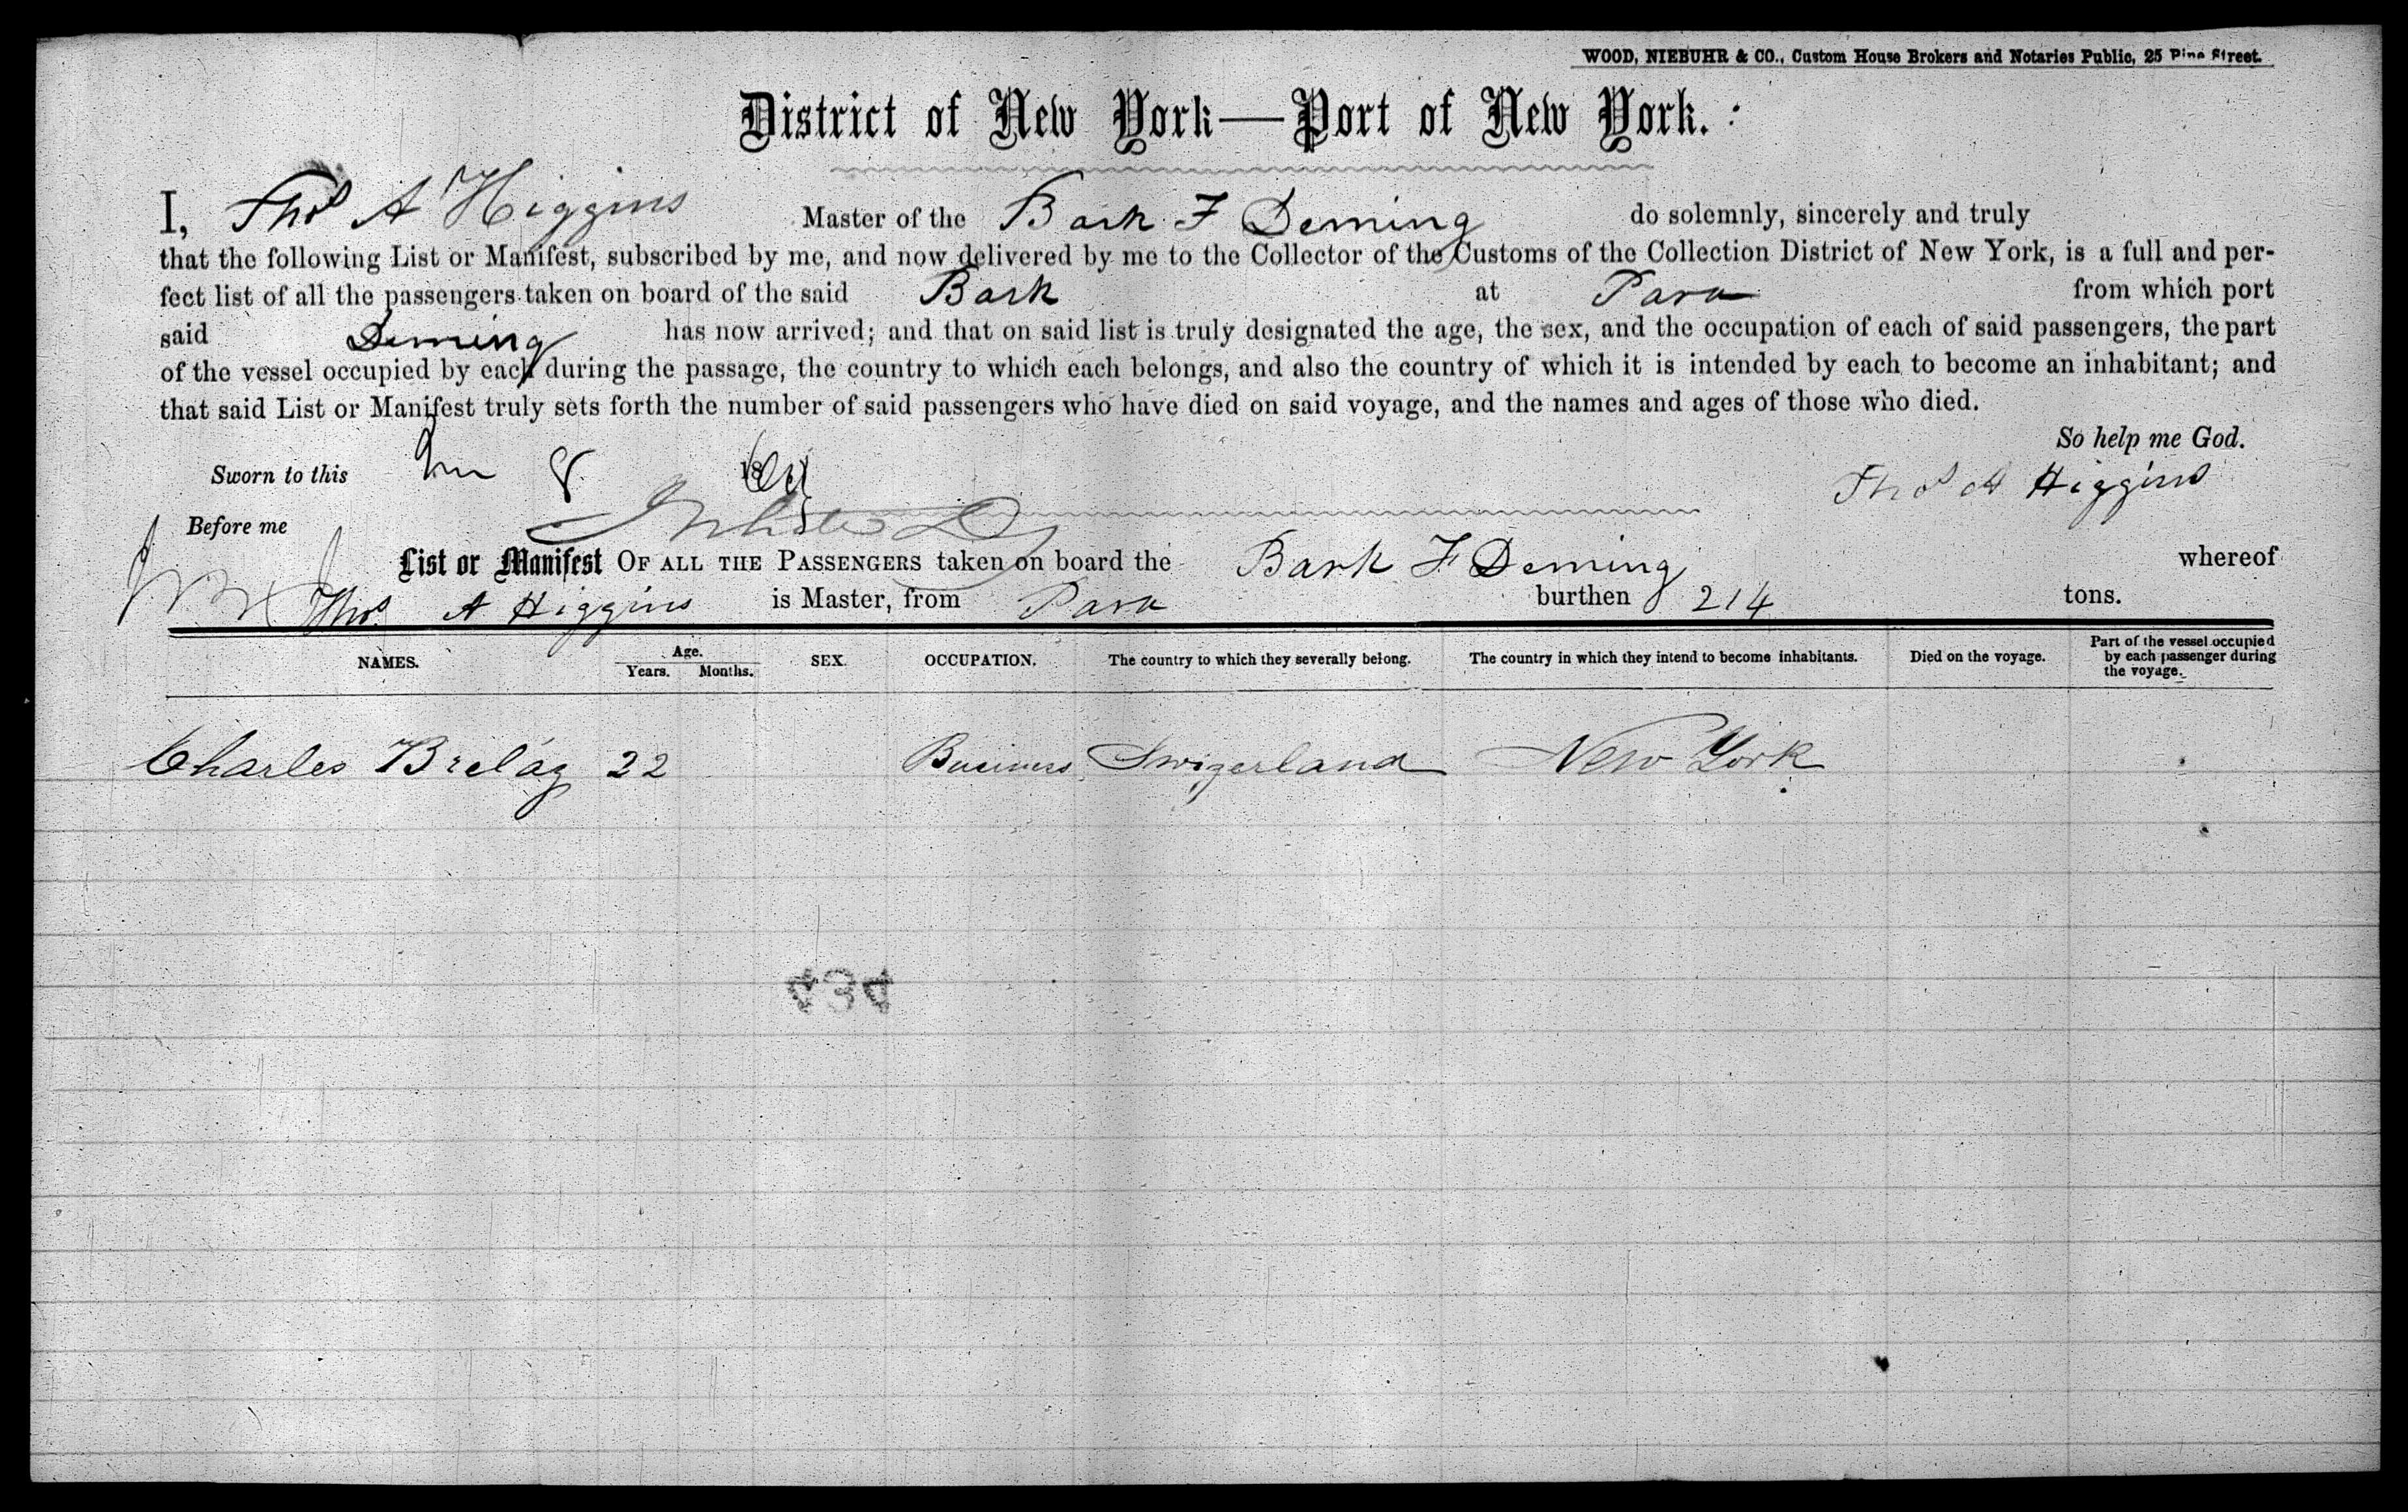 WOOD, NIEBUHR & CO., Custom House Brokers and Notaries Public, 25 Pine Street.
District of New York—Port of New York.
I, Thos A Higgins Master of the Bark F Deming do solemnly, sincerely and truly
that the following List or Manifest, subscribed by me, and now delivered by me to the Collector of the Customs of the Collection District of New York, is a full and per-
fect list of all the passengers taken on board of the said Bark at Para from which port
said Deming has now arrived; and that on said list is truly designated the age, the sex, and the occupation of each of said passengers, the part
of the vessel occupied by each during the passage, the country to which each belongs, and also the country of which it is intended by each to become an inhabitant; and
that said List or Manifest truly sets forth the number of said passengers who have died on said voyage, and the names and ages of those who died.
So help me God.
Sworn to this 8 18
Thos A Higgins
Before me
List or Manifest OF ALL THE PASSENGERS taken on board the Bark F Deming whereof
Thos A Higgins is Master, from Para burthen 214 tons.
NAMES. Age. Years. Months. SEX. OCCUPATION. The country to which they severally belong. The country in which they intend to become inhabitants. Died on the voyage. Part of the vessel occupied by each passenger during the voyage.
Charles Brelág 22 Business Swizerland New York
434